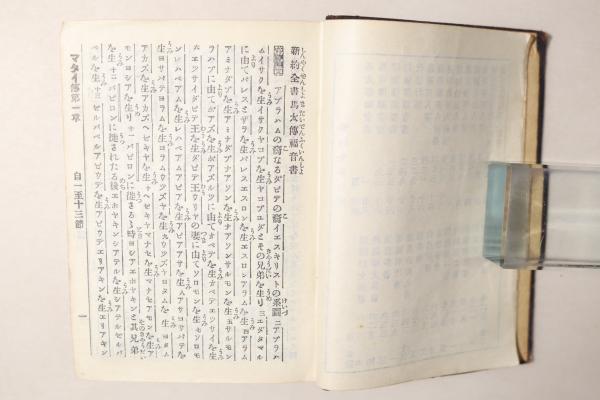 新約全書馬太傳福音書
アブラハムの裔なるダビデの裔イエスキリストの系圖 二 アブラハ
ムイサクを生イサクヤコブを生ヤコブユダとその兄弟を生り 三 ユダタマル
に由てパレスとザラを生パレスエスロンを生エスロンアラムを生 四 アラム
アミナダブを生アミナダブナアソンを生ナアソンサルモンを生 五 サルモン
ラハブに由てボアズを生ボアズルツに由てオベデを生オベデエツサイを生
六 エツサイダビデ王を生ダビデ王ウリヤの妻に由てソロモンを生 七 ソロモ
ンレハベアムを生レハベアムアビアを生アビアアサを生 八 アサヨサパテを
生ヨサパテヨラムを生ヨラムウツズヤを生 九 ウツズヤヨタムを生ヨタム
アカズを生アカズヘゼキヤを生 十 ヘゼキヤマナセを生マナセアモンを生ア
モンヨシアを生り 十一 バビロンに徙さるゝ時ヨシアエホヤキンと其兄弟
を生 十二 バビロンに徙されたる後エホヤキンシアテルを生シアテルゼルバ
ベルを生 十三 ゼルバベルアビウデを生アビウデエリアキンを生エリアキン
マタイ傳第一章
自一至十三節
一